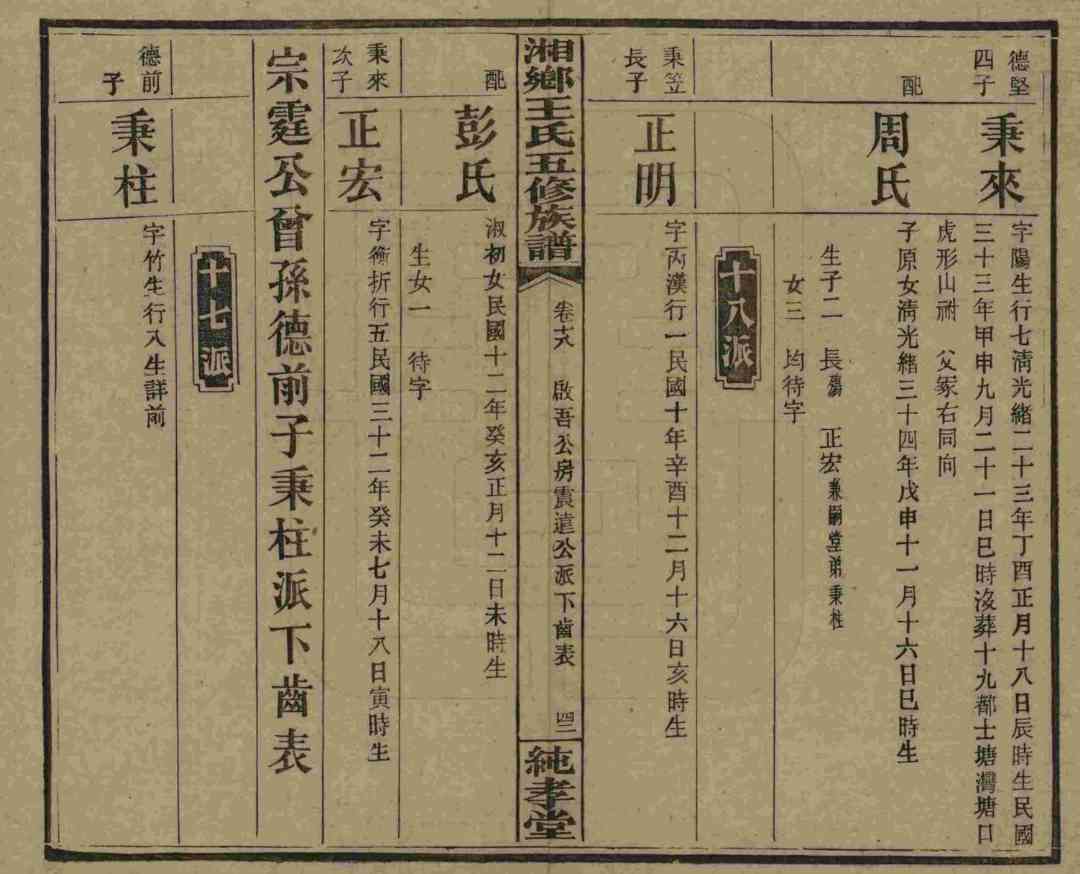 德堅
四子
秉來
字陽生行七清光緒二十三年丁酉正月十八日辰時生民國
三十三年甲申九月二十一日巳時沒葬十九都士塘灣塘口
虎形山祔 父冢右同向
配
周氏
子原女清光緒三十四年戊申十一月十六日巳時生
生子二 長殤 正宏兼嗣堂弟秉柱
女三 均待字
十八派
秉笠
長子
正明
字丙漢行一民國十年辛酉十二月十六日亥時生
湘鄉王氏五修族譜
卷十八 啟吾公房震遠公派下齒表 四三
純孝堂
配
彭氏
淑初女民國十二年癸亥正月十二日未時生
生女一 待字
秉來
次子
正宏
字衡折行五民國三十二年癸未七月十八日寅時生
宗霆公曾孫德前子秉柱派下齒表
十七派
德前
子
秉柱
字竹生行入生詳前